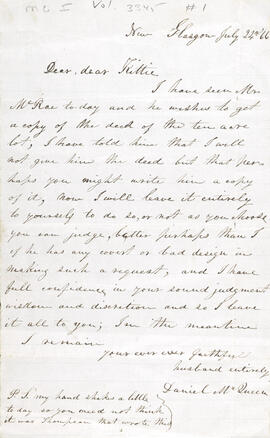 MG I Vol. 3345 #1
New Glasgow July 24th
Dear, dear Kittie
I have seen Mr
McRae to day and he wishes to get
a copy of the deed of the ten acre
lot; I have told him that I will
not give him the deed but that per-
haps you might write him a copy
of it, now I will leave it entirely
to yourself to do so, or not as you choose
you can judge, better perhaps than I
if he has any covert or bad design in
making such a request, and I have
full confidence in your sound judgment
wisdom and discretion and so I leave
it all to you; In the meantime
I remain
your ever ever faithful
husband entirely
Daniel McQueen
P.S. my hand shakes a little
to day so you need not think
it was Thompson that wrote this